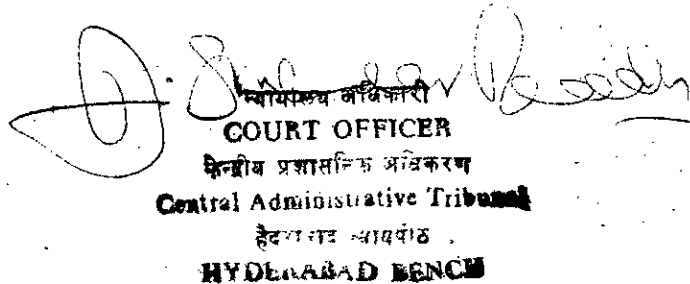 न्यायालय अधिकारी
COURT OFFICER
केन्द्रीय प्रशासनिक अधिकरण
Central Administrative Tribunal
हैदराबाद न्यायपीठ
HYDERABAD BENCH